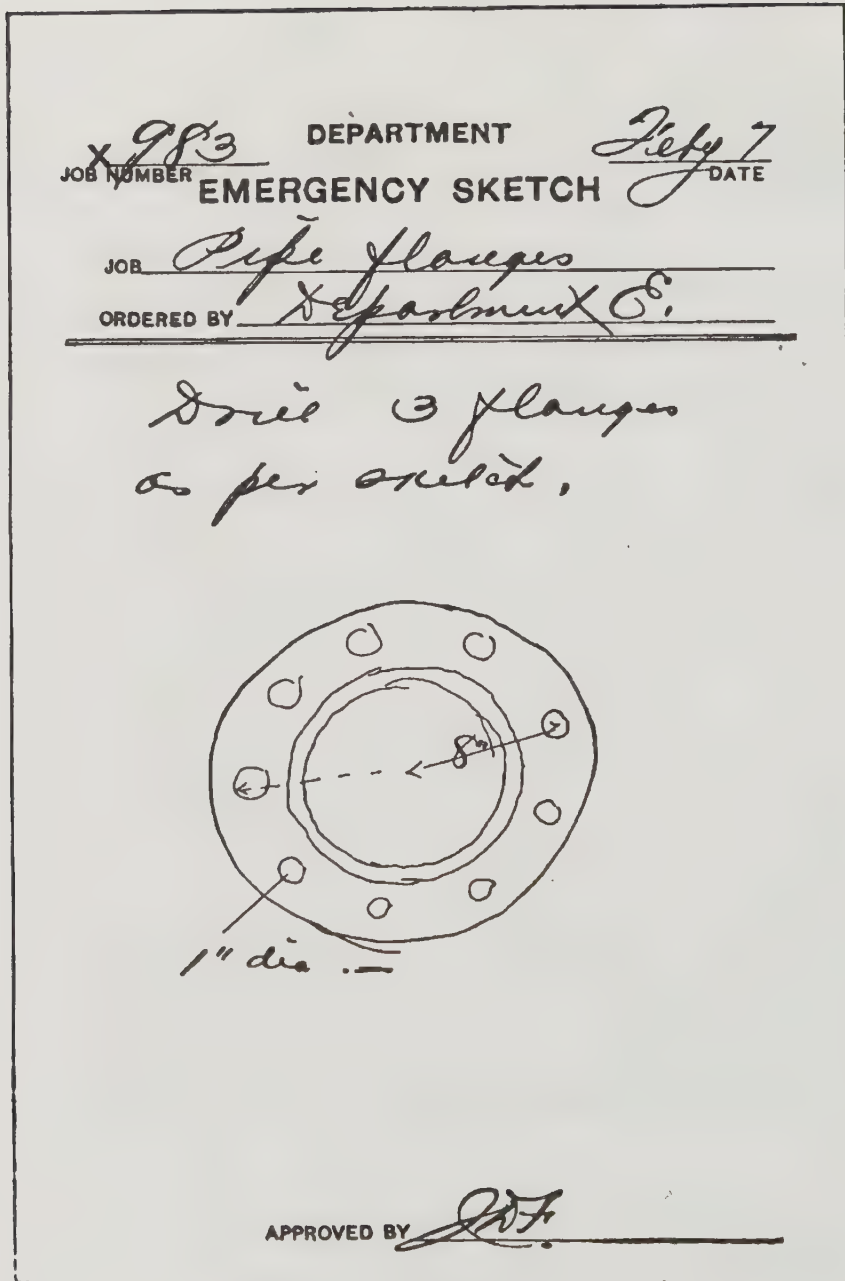 X 983 DEPARTMENT Feby 7
JOB NUMBER EMERGENCY SKETCH DATE
JOB Pipe flanges
ORDERED BY Department E.
Drill 3 flanges
as per sketch.
8"
1" dia.
APPROVED BY